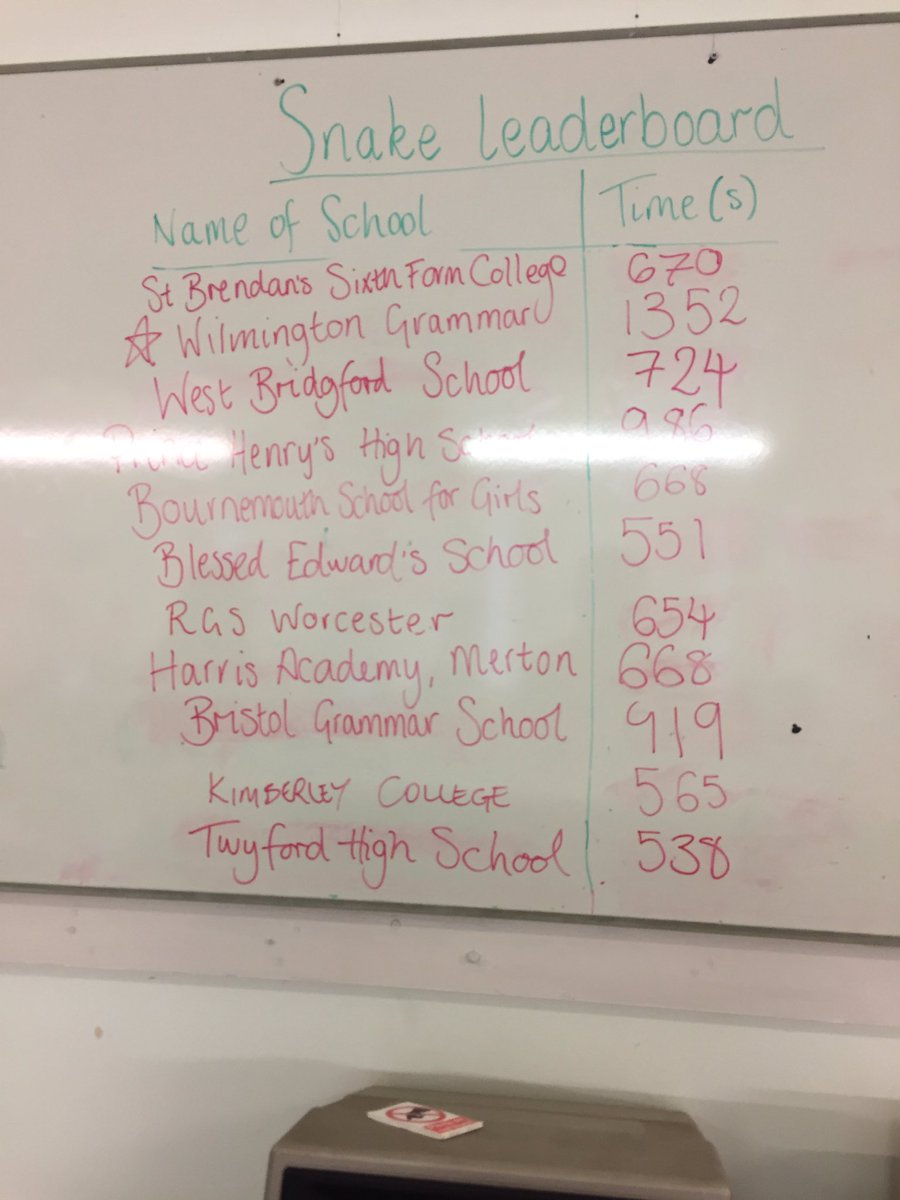 Snake Leaderboard
Name of School Time (s)
St Brendan's Sixth Form College 670
☆ Wilmington Grammar 1352
West Bridgford School 724
Henry's High 986
Bournemouth School for Girls 668
Blessed Edward's School 551
RGS Worcester 654
Harris Academy, Merton 668
Bristol Grammar School 919
KIMBERLEY COLLEGE 565
Twyford High School 538